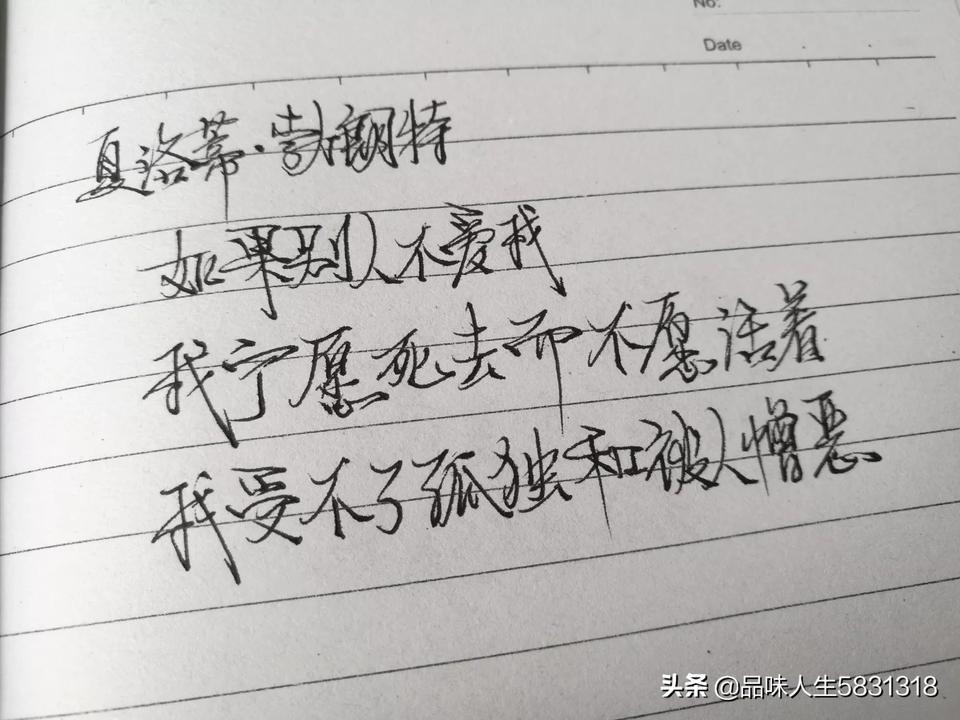 No:
Date
夏洛蒂·勃朗特
如果别人不爱我
我宁愿死去而不愿活着
我受不了孤独和被人憎恶
头条 @品味人生5831318